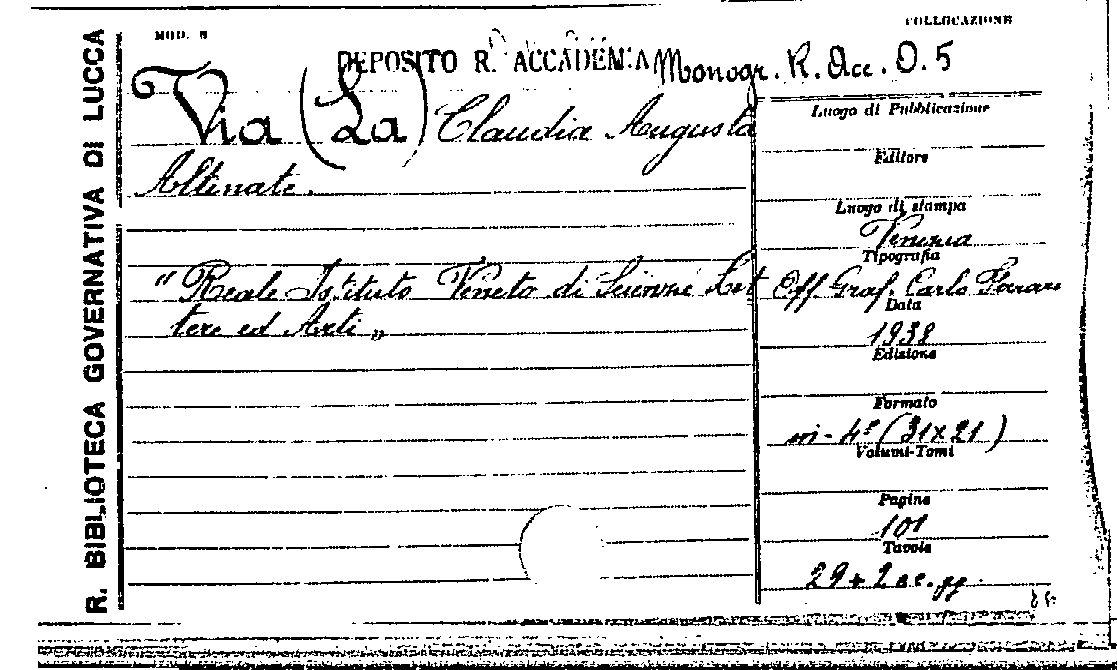 R. BIBLIOTECA GOVERNATIVA DI LUCCA
MOD. 8
COLLOCAZIONE
DEPOSITO R. ACCADEMIA Monogr. R. Acc. O. 5
Via (La) Claudia Augusta
Altinate.
"Reale Istituto Veneto di Scienze Let
tere ed Arti"
Luogo di Pubblicazione
Editore
Luogo di stampa
Venezia
Tipografia
Off. Graf. Carlo Ferrari
Data
1938
Edizione
Formato
in-4° (31x21)
Volumi-Tomi
Pagine
101
Tavole
29 + 2